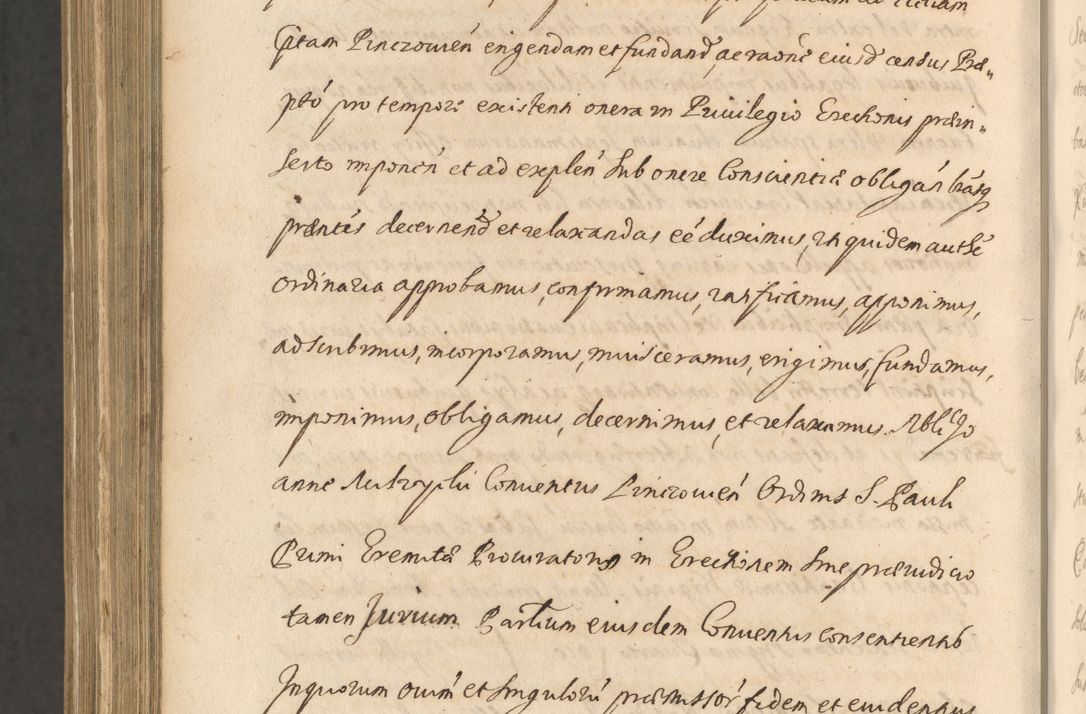 Cptam Pinczowień erigendam et fundand, ac raoñe eiusd census Præ„
ptó pro tempore existenti onera in Priuilegio Erectionis præin„
serto imponeń et ad expleń sub onere Conscientiæ obligań hasq
præntes decernend et relaxandas eé duximus, Uti quidem authe
ordinaria approbamus, confirmamus, ratificamus, apponimus,
adscribimus, incorporamus, inuisceramus, erigimus, fundamus,
imponimus, obligamus, decernimus, et relaxamus.
anne Conuentus Pinczowień Ordinis S. Pauli
Primi Eremitæ Procuratoris in Erectionem sine præiudicio
tamen Jurium Partium eiusdem Conuentus consentientib
Inquorum oniũm et singulorũ præmissor fidem et euidentius